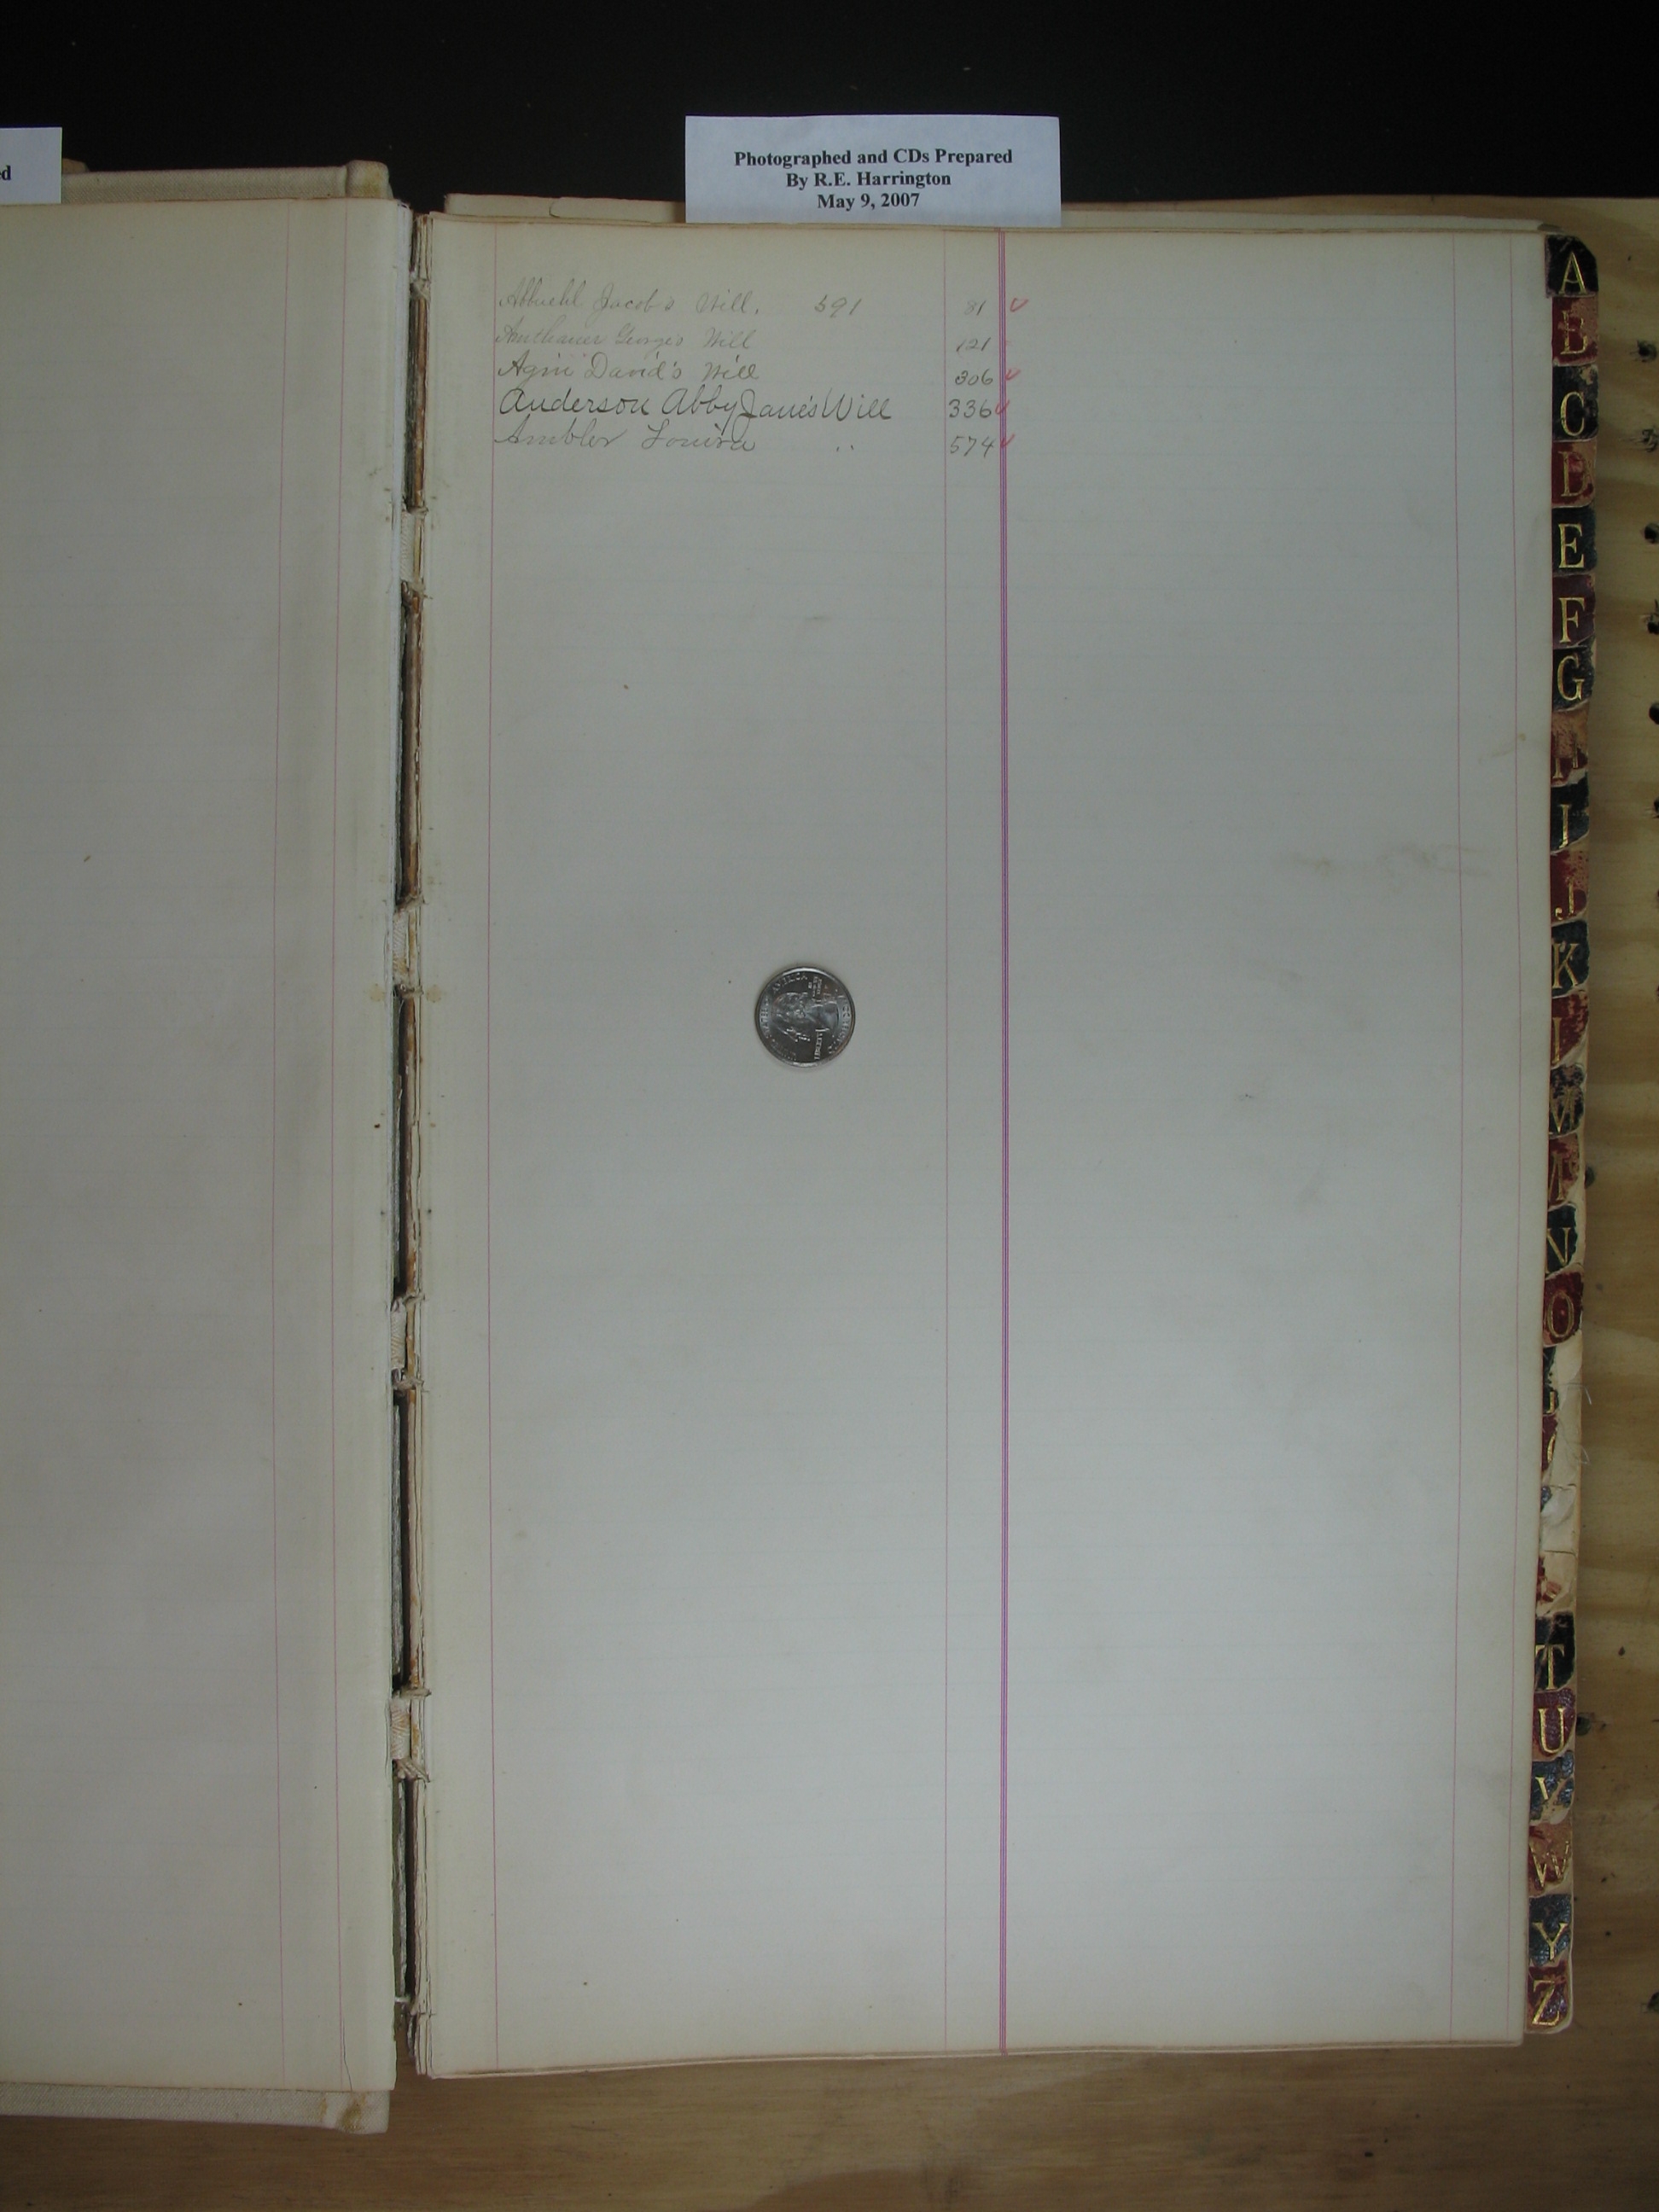 d
Photographed and CDs Prepared
By R.E. Harrington
May 9, 2007
Abbuehl Jacob's Will. 391 81
Amthauer Georges Will 121
Agin David's Will 306
Anderson Abby Jane's Will 336
Ambler Louisa .. 574
A
B
C
D
E
F
G
H
I
J
K
L
M
N
O
T
U
V
W
Y
Z